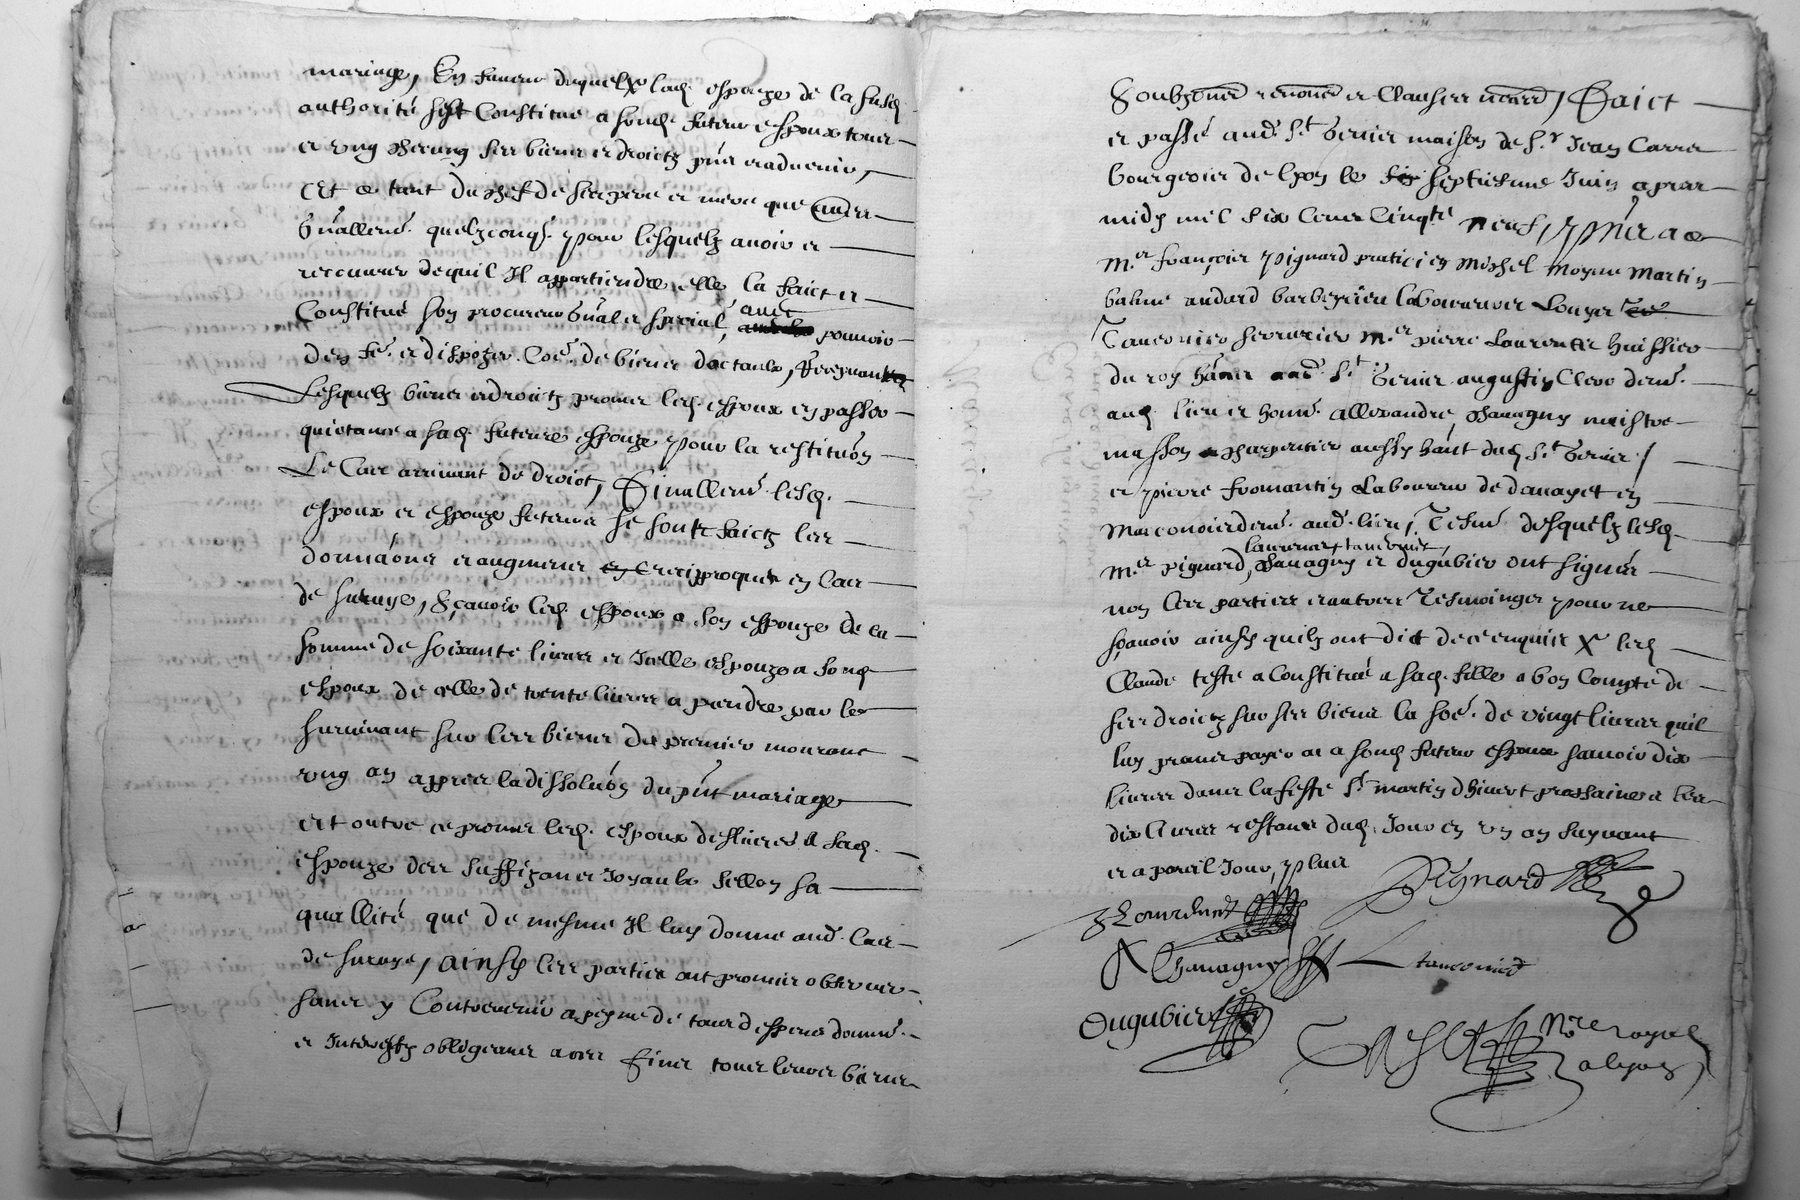 mariage, En faveur duquelx lad. espouze de la susd.
authorité s'est Constitué a sond. futeur espoux tous
et ung chacung ses biens et droictz pñts et advenir,
Et ce tant du chef de ses pere et mere que aultres
gñallemt. quelzconqs. pour lesquelz avoir et
recouvrer de quil Il appartiendra elle la faict et
Constitué son procureur gñal et spécial, avec pouvoir
den fe. et dispozer Coe. de biens doctaulx,
Lesquelz biens et droictz promet led. espoux en passer
quictance a sad. future espouze pour la restituõn
Le Cas arrivant de droict, Finallemt. lesd.
espoux et espouze futeurs se sont faictz les
donnaõns et augments en reciproques en Cas
de survye, sçavoir led. espoux a son espouze de la
somme de soixante livres et Icelle espouze a sond.
espoux de celle de trente livres a prendre par le
survivant sur les biens du premier mourant
ung an appres la dissoluõn du pñt mariage
et outre ce promet led. espoux a sad.
espouze des suffizants Joyaulx sellon sa
quallité que de mesme Il luy donne aud. Cas
de survye, ainsy les parties ont promis observer
sans y Contrevenir a peyne de tous despens domms.
et Interestz obligeants a ces fins tous leurs biens
soubzons renons et Clauses necres, Faict
et passé aud. St. Genis maison de Sr. Jean Carret
bourgeois de lyon le septiesme Juin apres
midy mil six Cents Cinqte neuf, pñts a ce
Me. françois pignard praticien michel moyne martin
balme andard labourers Louys
Tavernier serrurier Me. pierre Laurent huissier
du roy hãnt aud. St. Genis augustin Clerc demt.
aud. lieu et honn. Allexandre Chavagny maistre
masson charpentier aussy hãnt dud. St. Genis,
et pierre fromantin Laboureur de davayet en
maconois demt. aud. lieu, Tesm. desquelz lesd.
laurenset, tavernier,
Me. pignard, Chavagny et dugubier ont signés
non les parties et autres Tesmoingts pour ne
sçavoir ainsy quilz ont dict de ce enquis X led.
Claude teste a Constitué a sad. fille a bon Compte de
ses droictz sur ses biens la soe. de vingt livres quil
luy promet payer et a sond. futeur espoux sçavoir dix
livres dans la feste St. martin dhivert prochaine et les
dix livres restants dud. Jour en un an suyvant
et a pareil Jour, plus
Pignard
Laurenset
A Chavagny
L tavernier
Dugubier
Nre. royal
a lyon